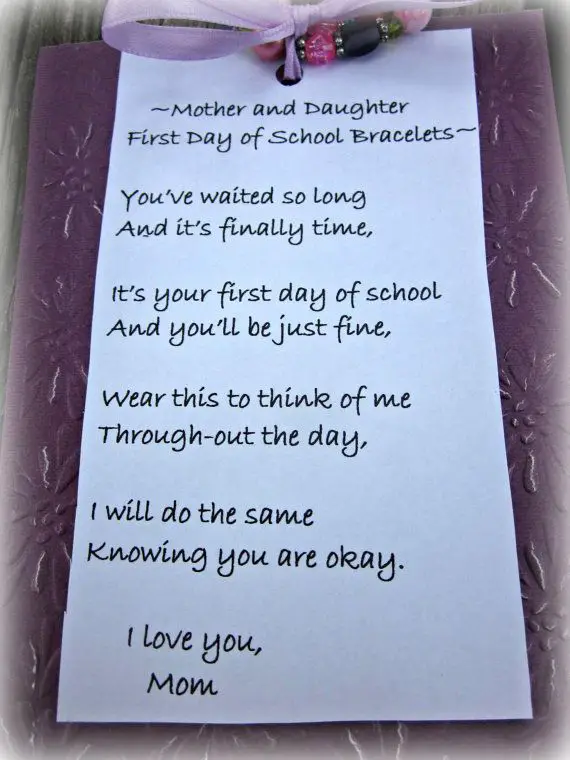 ~Mother and Daughter
First Day of School Bracelets~
You've waited so long
And it's finally time,
It's your first day of school
And you'll be just fine,
Wear this to think of me
Through-out the day,
I will do the same
Knowing you are okay.
I love you,
Mom